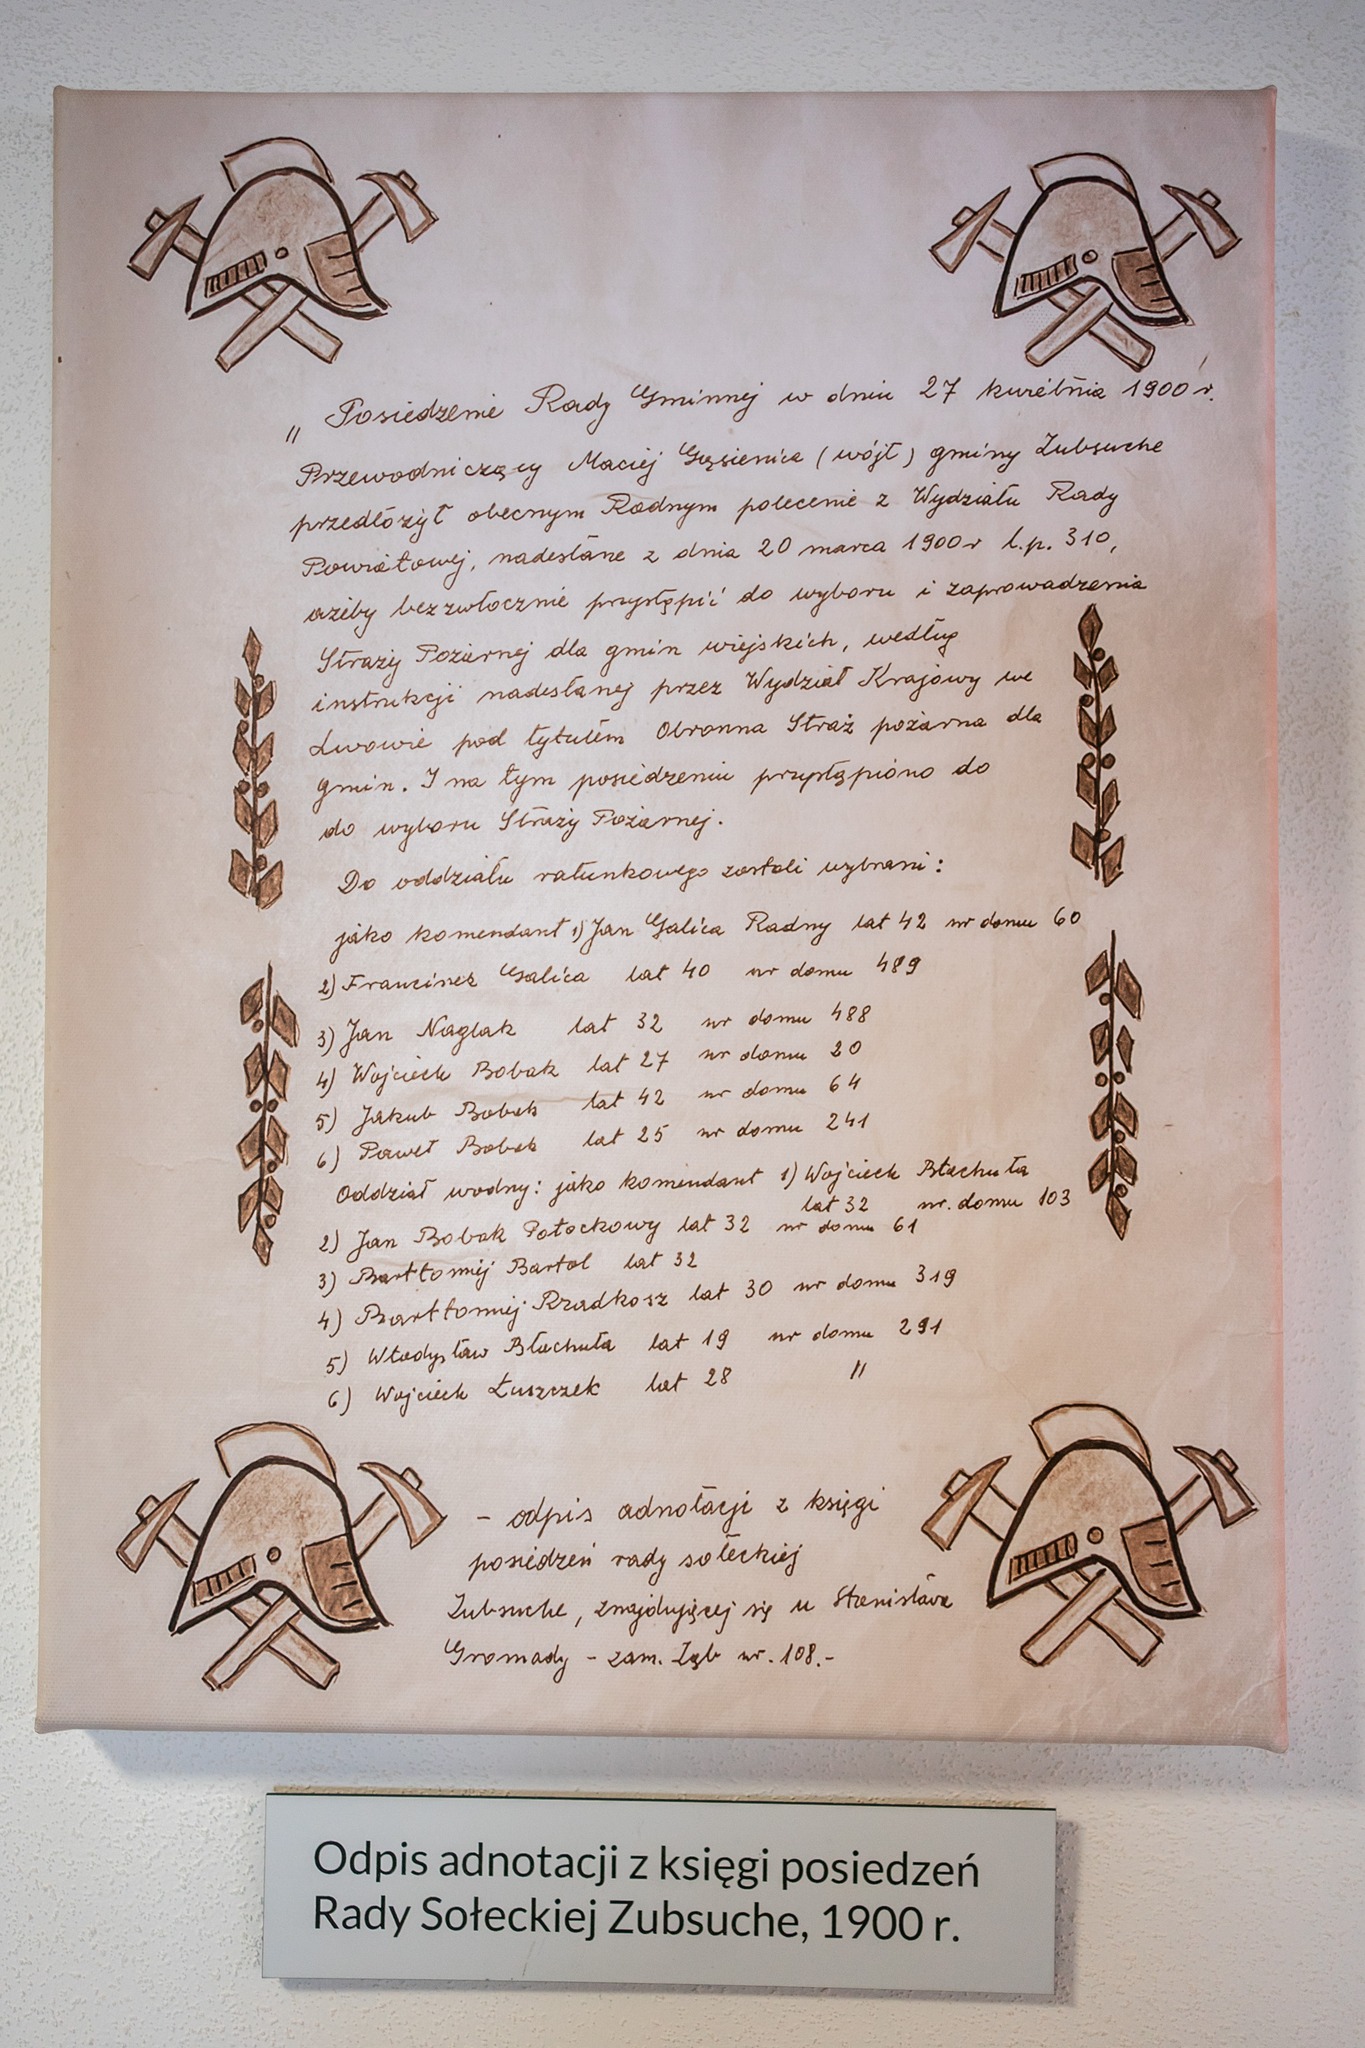 „ Posiedzenie Rady Gminnej w dniu 27 kwietnia 1900 r.
Przewodniczący Maciej Gąsienica (wójt) gminy Zubsuche
przedłożył obecnym Radnym polecenie z Wydziału Rady
Powiatowej, nadesłane z dnia 20 marca 1900 r l.p. 310,
ażeby bezzwłocznie przystąpić do wyboru i zaprowadzenia
Straży Pożarnej dla gmin wiejskich, według
instrukcji nadesłanej przez Wydział Krajowy we
Lwowie pod tytułem Obronna Straż pożarna dla
gmin. I na tym posiedzeniu przystąpiono do
do wyboru Straży Pożarnej.
Do oddziału ratunkowego zostali wybrani:
jako komendant 1) Jan Galica Radny lat 42 nr domu 60
2) Franciszek Galica lat 40 nr domu 489
3) Jan Naglak lat 32 nr domu 488
4) Wojciech Bobak lat 27 nr domu 20
5) Jakub Bobak lat 42 nr domu 64
6) Paweł Bobak lat 25 nr domu 241
Oddział wodny: jako komendant 1) Wojciech Błachuta
lat 32 nr. domu 103
2) Jan Bobak Potockowy lat 32 nr domu 61
3) Bartłomiej Bartol lat 32
4) Bartłomiej Rzadkosz lat 30 nr domu 319
5) Władysław Błachuta lat 19 nr domu 291
6) Wojciech Łuszczek lat 28 "
- odpis adnotacji z księgi
posiedzeń rady sołeckiej
Zubsuche, znajdującej się u Stanisława
Gromady - zam. Ząb nr. 108.-
Odpis adnotacji z księgi posiedzeń
Rady Sołeckiej Zubsuche, 1900 r.